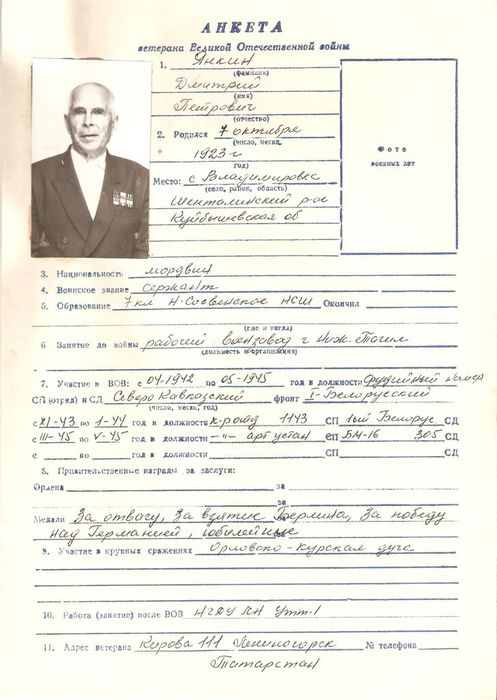 АНКЕТА
ветерана Великой Отечественной войны
1. Янкин
(фамилия)
Дмитрий
(имя)
Петрович
(отчество)
2. Родился 7 октября
(число, месяц,
1923 г
год)
Место: с Владимировка
(село, район, область)
Шенталинский р-он
Куйбышевская об
Фото
военных лет
3. Национальность мордвин
4. Воинское звание сержант
5. Образование 7 кл Н-Сосвенское НСШ Окончил
(где и когда)
6 Занятие до войны рабочий военвзвод г Ниж. Тагил
(должность и организация)
7. Участие в ВОВ: с 04-1942 по 05-1945 год в должности орудийный номер
СП (отряд) и СД Северо Кавказский фронт I-Белорусский
(число, месяц, год)
с XI-43 по 1-44 год в должности к-р отд 1143 СП 1ый Белорус СД
с III-45 по V-45 год в должности -"- арт устан СП БМ-16 305 СД
с по год в должности СП СД
8. Правительственные награды за заслуги:
Ордена за
за
Медали За отвагу, За взятие Берлина, За победу
над Германией, юбилейные
9. Участие в крупных сражениях Орловско-курская дуга
10. Работа (занятие) после ВОВ НГДУ ЛН УТТ-1
11. Адрес ветерана Кирова 111 Лениногорск № телефона
Татарстан